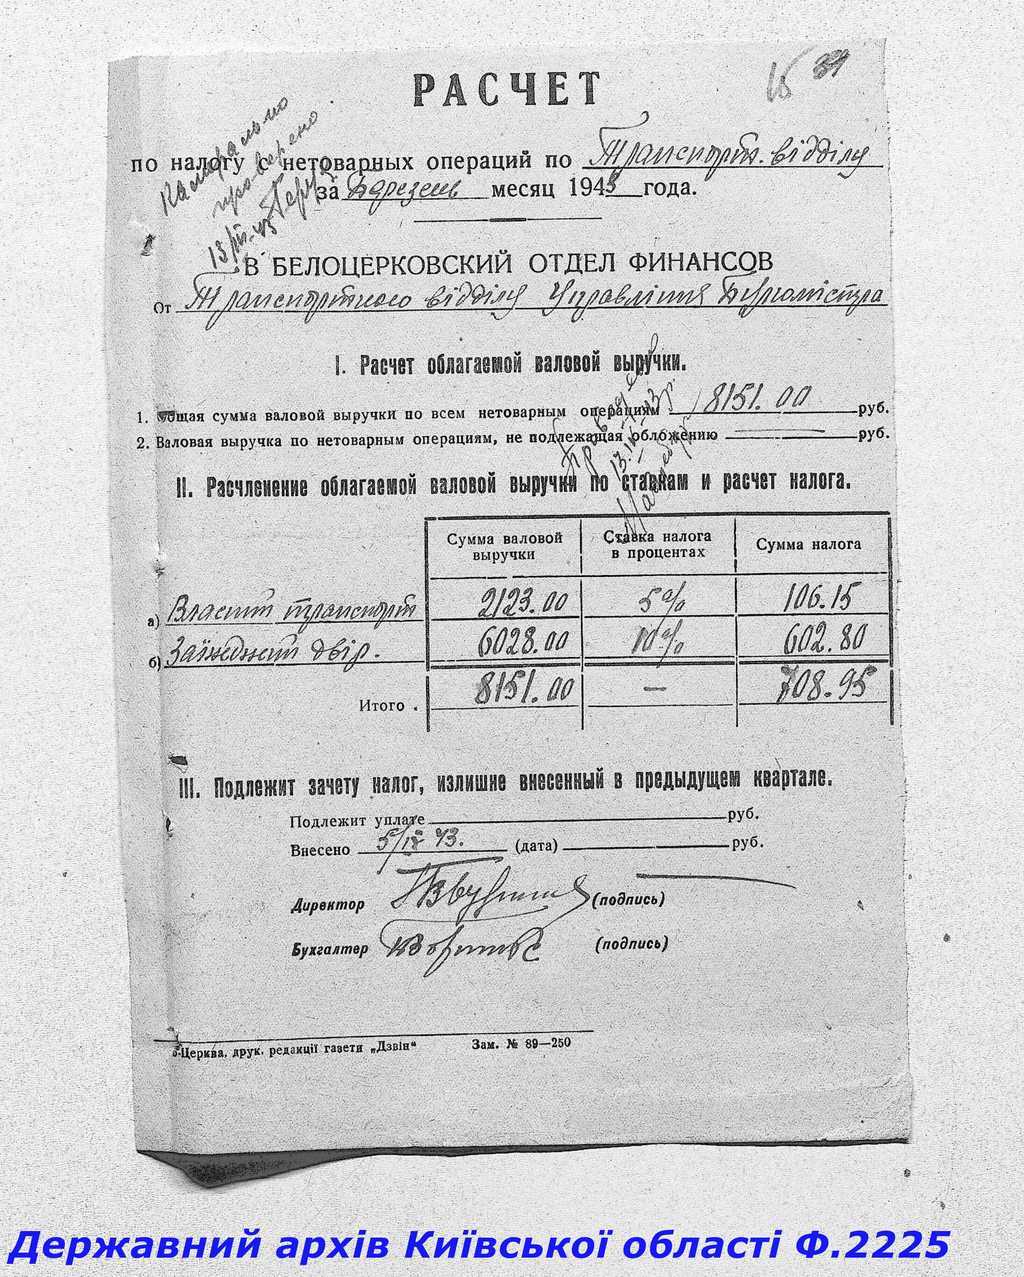 15 39
РАСЧЕТ
Камерально
проверено
по налогу с нетоварных операций по Транспорт. відділу
за Березень месяц 1943 года.
В БЕЛОЦЕРКОВСКИЙ ОТДЕЛ ФИНАНСОВ
От Транспортного відділу Управління Бургомістра
I. Расчет облагаемой валовой выручки.
1. Общая сумма валовой выручки по всем нетоварным операциям 8151.00 руб.
2. Валовая выручка по нетоварным операциям, не подлежащая обложению руб.
II. Расчленение облагаемой валовой выручки по ставкам и расчет налога.
Сумма валовой выручки Ставка налога в процентах Сумма налога
а) Власний транспорт 2123.00 5% 106.15
б) Заїжджий двір. 6028.00 10% 602.80
Итого . 8151.00 — 708.95
III. Подлежит зачету налог, излишне внесенный в предыдущем квартале.
Подлежит уплате руб.
Внесено 5/IV 43. (дата) руб.
Директор (подпись)
Бухгалтер (подпись)
Б-Церква, друк. редакції газети „Дзвін“ Зам. № 89—250
Державний архів Київської області Ф.2225